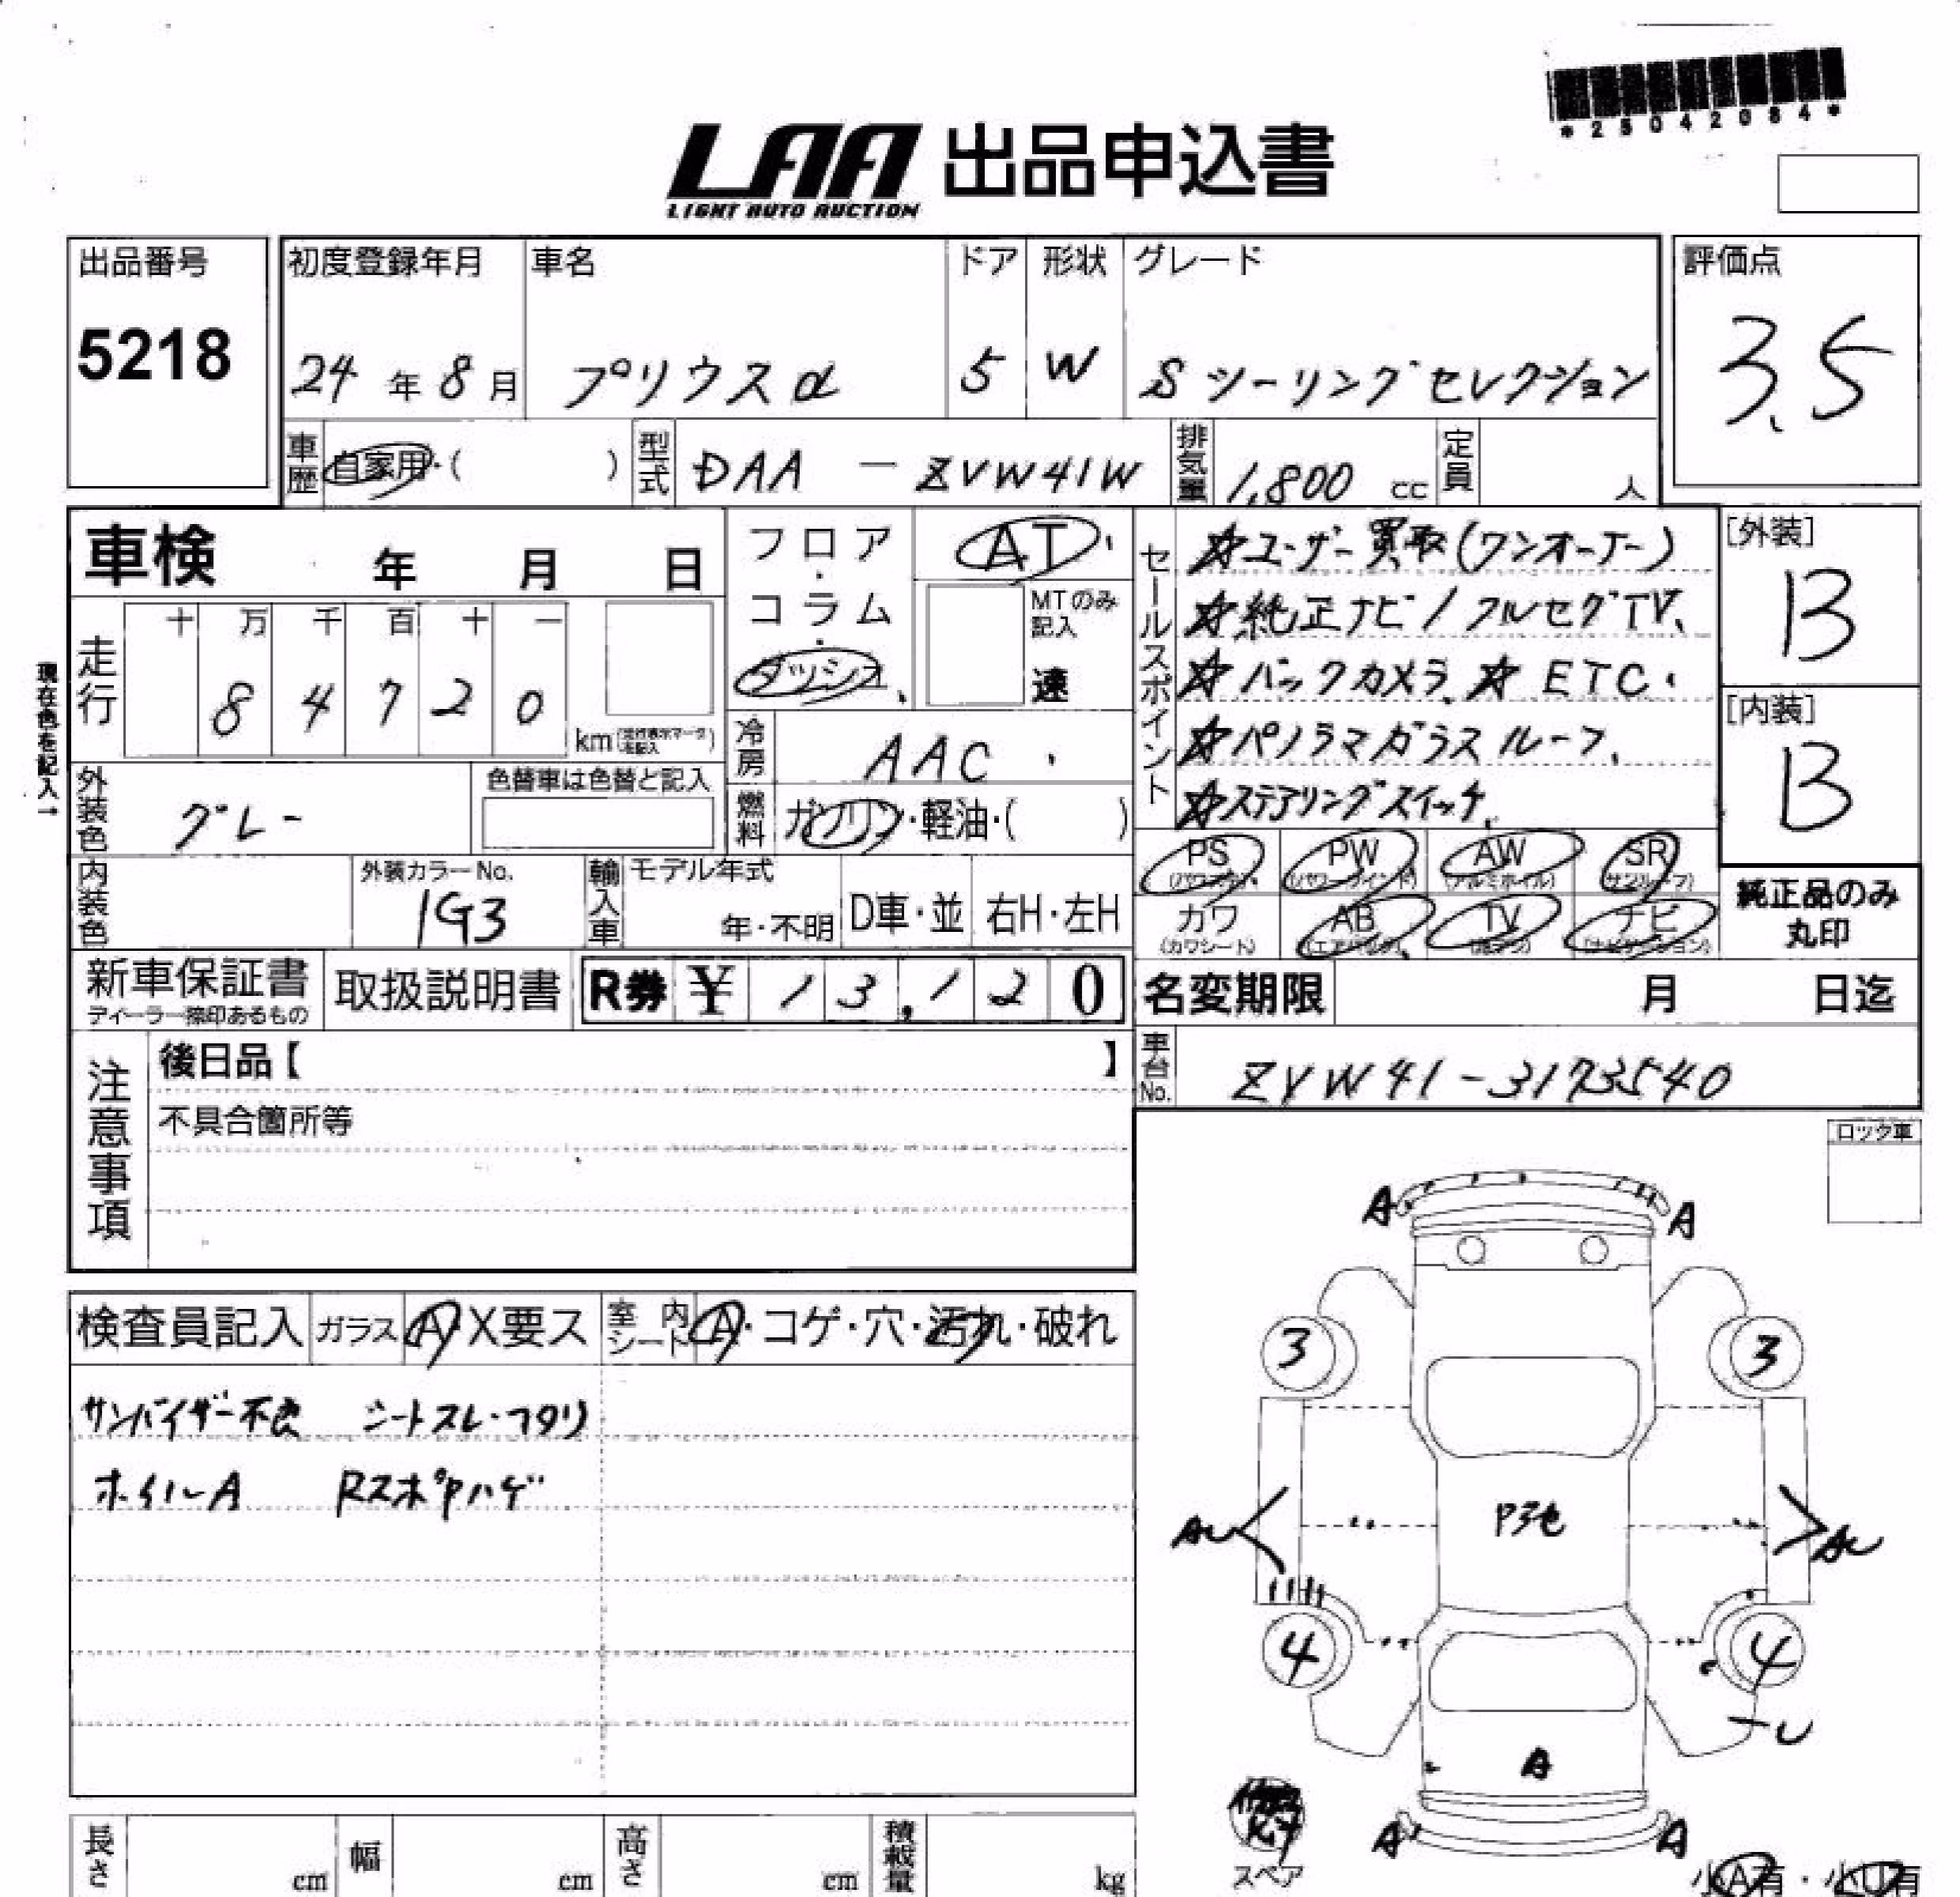 *25042084*
LAA 出品申込書
LIGHT AUTO AUCTION
出品番号
5218
初度登録年月
24年8月
車名
プリウスα
ドア
5
形状
W
グレード
Sツーリングセレクション
評価点
3.5
車歴
自家用・( )
型式
DAA - ZVW41W
排気量
1,800 cc
定員
人
車検 年 月 日
走行
十 万 千 百 十 一
8 4 7 2 0
km
現在色を記入→
フロア・コラム・ダッシュ
AT
MTのみ記入
速
冷房
AAC
燃料
ガソリン・軽油・( )
外装色
グレー
色替車は色替と記入
内装色
外装カラーNo.
1G3
輸入車
モデル年式
年・不明
D車・並
右H・左H
セールスポイント
☆ユーザー買取(ワンオーナー)
☆純正ナビ/フルセグTV、
☆バックカメラ、☆ETC.
☆パノラマガラスルーフ、
☆ステアリングスイッチ、
[外装]
B
[内装]
B
PS
(パワステ)
PW
(パワーウインド)
AW
(アルミホイル)
SR
(サンルーフ)
カワ
(カワシート)
AB
(エアバック)
TV
ナビ
(ナビゲーション)
純正品のみ
丸印
新車保証書
ディーラー捺印あるもの
取扱説明書
R券 ¥ 13,120
名変期限 月 日迄
車台No.
ZVW41-3173540
注意事項
後日品【 】
不具合箇所等
ロック車
検査員記入
ガラス
A・X要ス
室内シート
A・コゲ・穴・汚れ・破れ
サンバイザー不良 シートスレ・ヘタリ
ホイルA RスポPハゲ
A A
3 3
AU AU
4 4
U
A
A A
スペア
小A有・小U有
長さ cm
幅 cm
高さ cm
積載量 kg